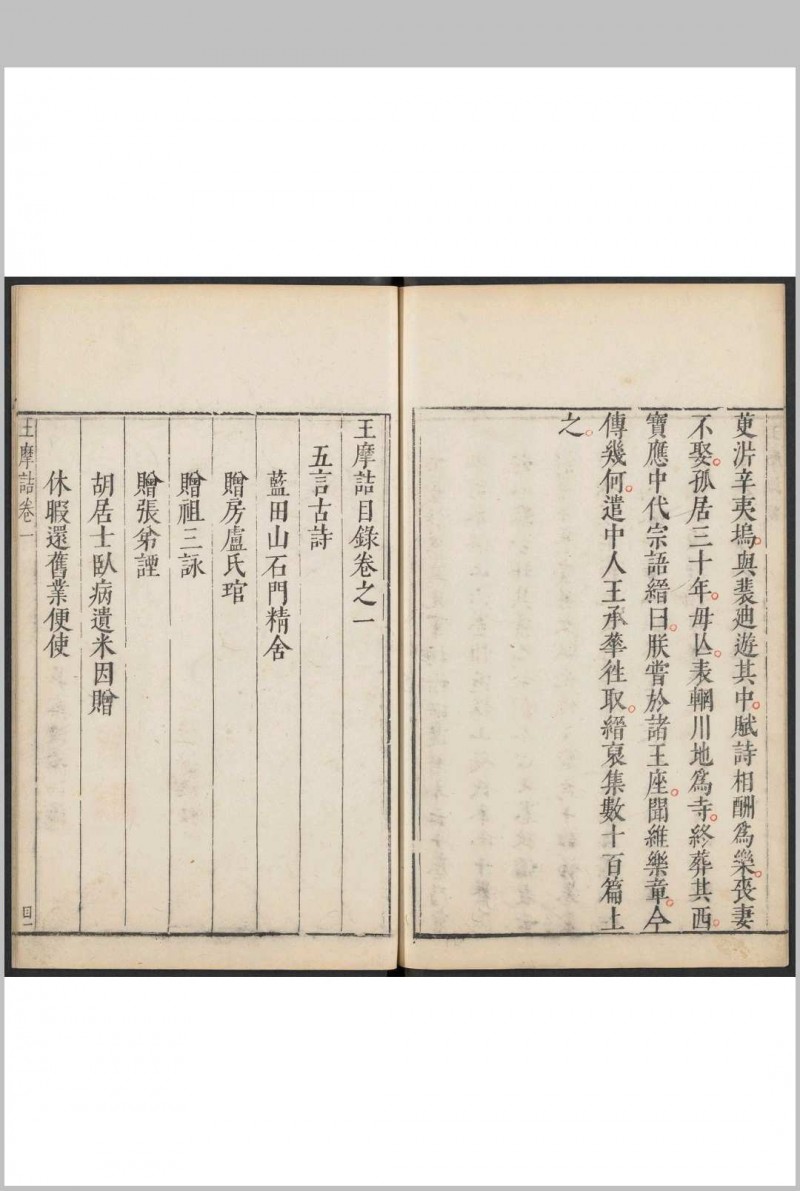 茰沜辛夷塢與裴廸遊其中賦詩相酬爲樂喪妻
不娶孤居三十年母亾表輞川地爲寺終葬其西
寶應中代宗語縉曰朕嘗於諸王座聞維樂章今
傳幾何遣中人王承華徃取縉裒集數十百篇上
之
王摩詰目錄卷之一
五言古詩
藍田山石門精舍
贈房盧氏琯
贈祖三詠
贈張弟諲
胡居士臥病遺米因贈
休暇還舊業便使
王摩詰卷一
目一